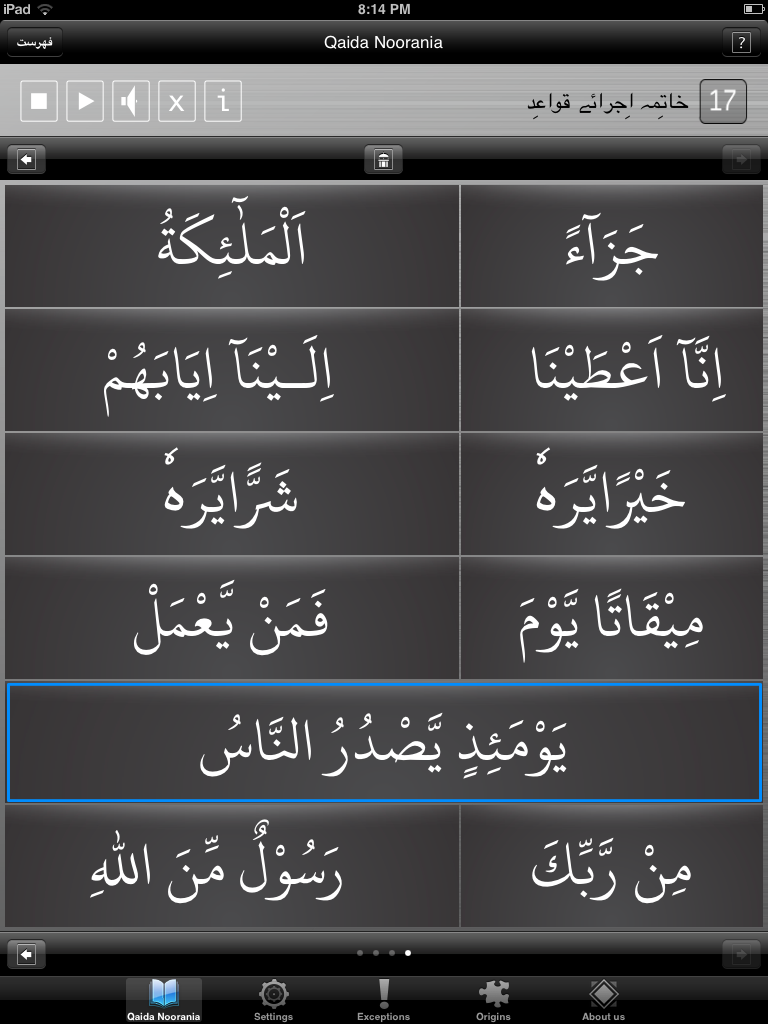 iPad 8:14 PM
فهرست Qaida Noorania ?
x i خاتِمہ اِجرائے قواعدِ 17
جَزَآءً اَلْمَلٰٓئِكَةُ
اِنَّآ اَعْطَيْنَا اِلَـيْنَآ اِيَابَهُمْ
خَيْرًايَّرَهٗ شَرًّايَّرَهٗ
مِيْقَاتًا يَّوْمَ فَمَنْ يَّعْمَلْ
يَوْمَئِذٍ يَّصْدُرُ النَّاسُ
مِنْ رَّبِّكَ رَسُوْلٌ مِّنَ اللّٰهِ
Qaida Noorania Settings Exceptions Origins About us